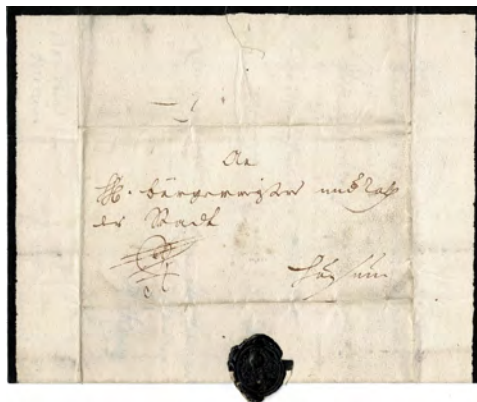 An
H. bürgermeister und Rath
der Stadt